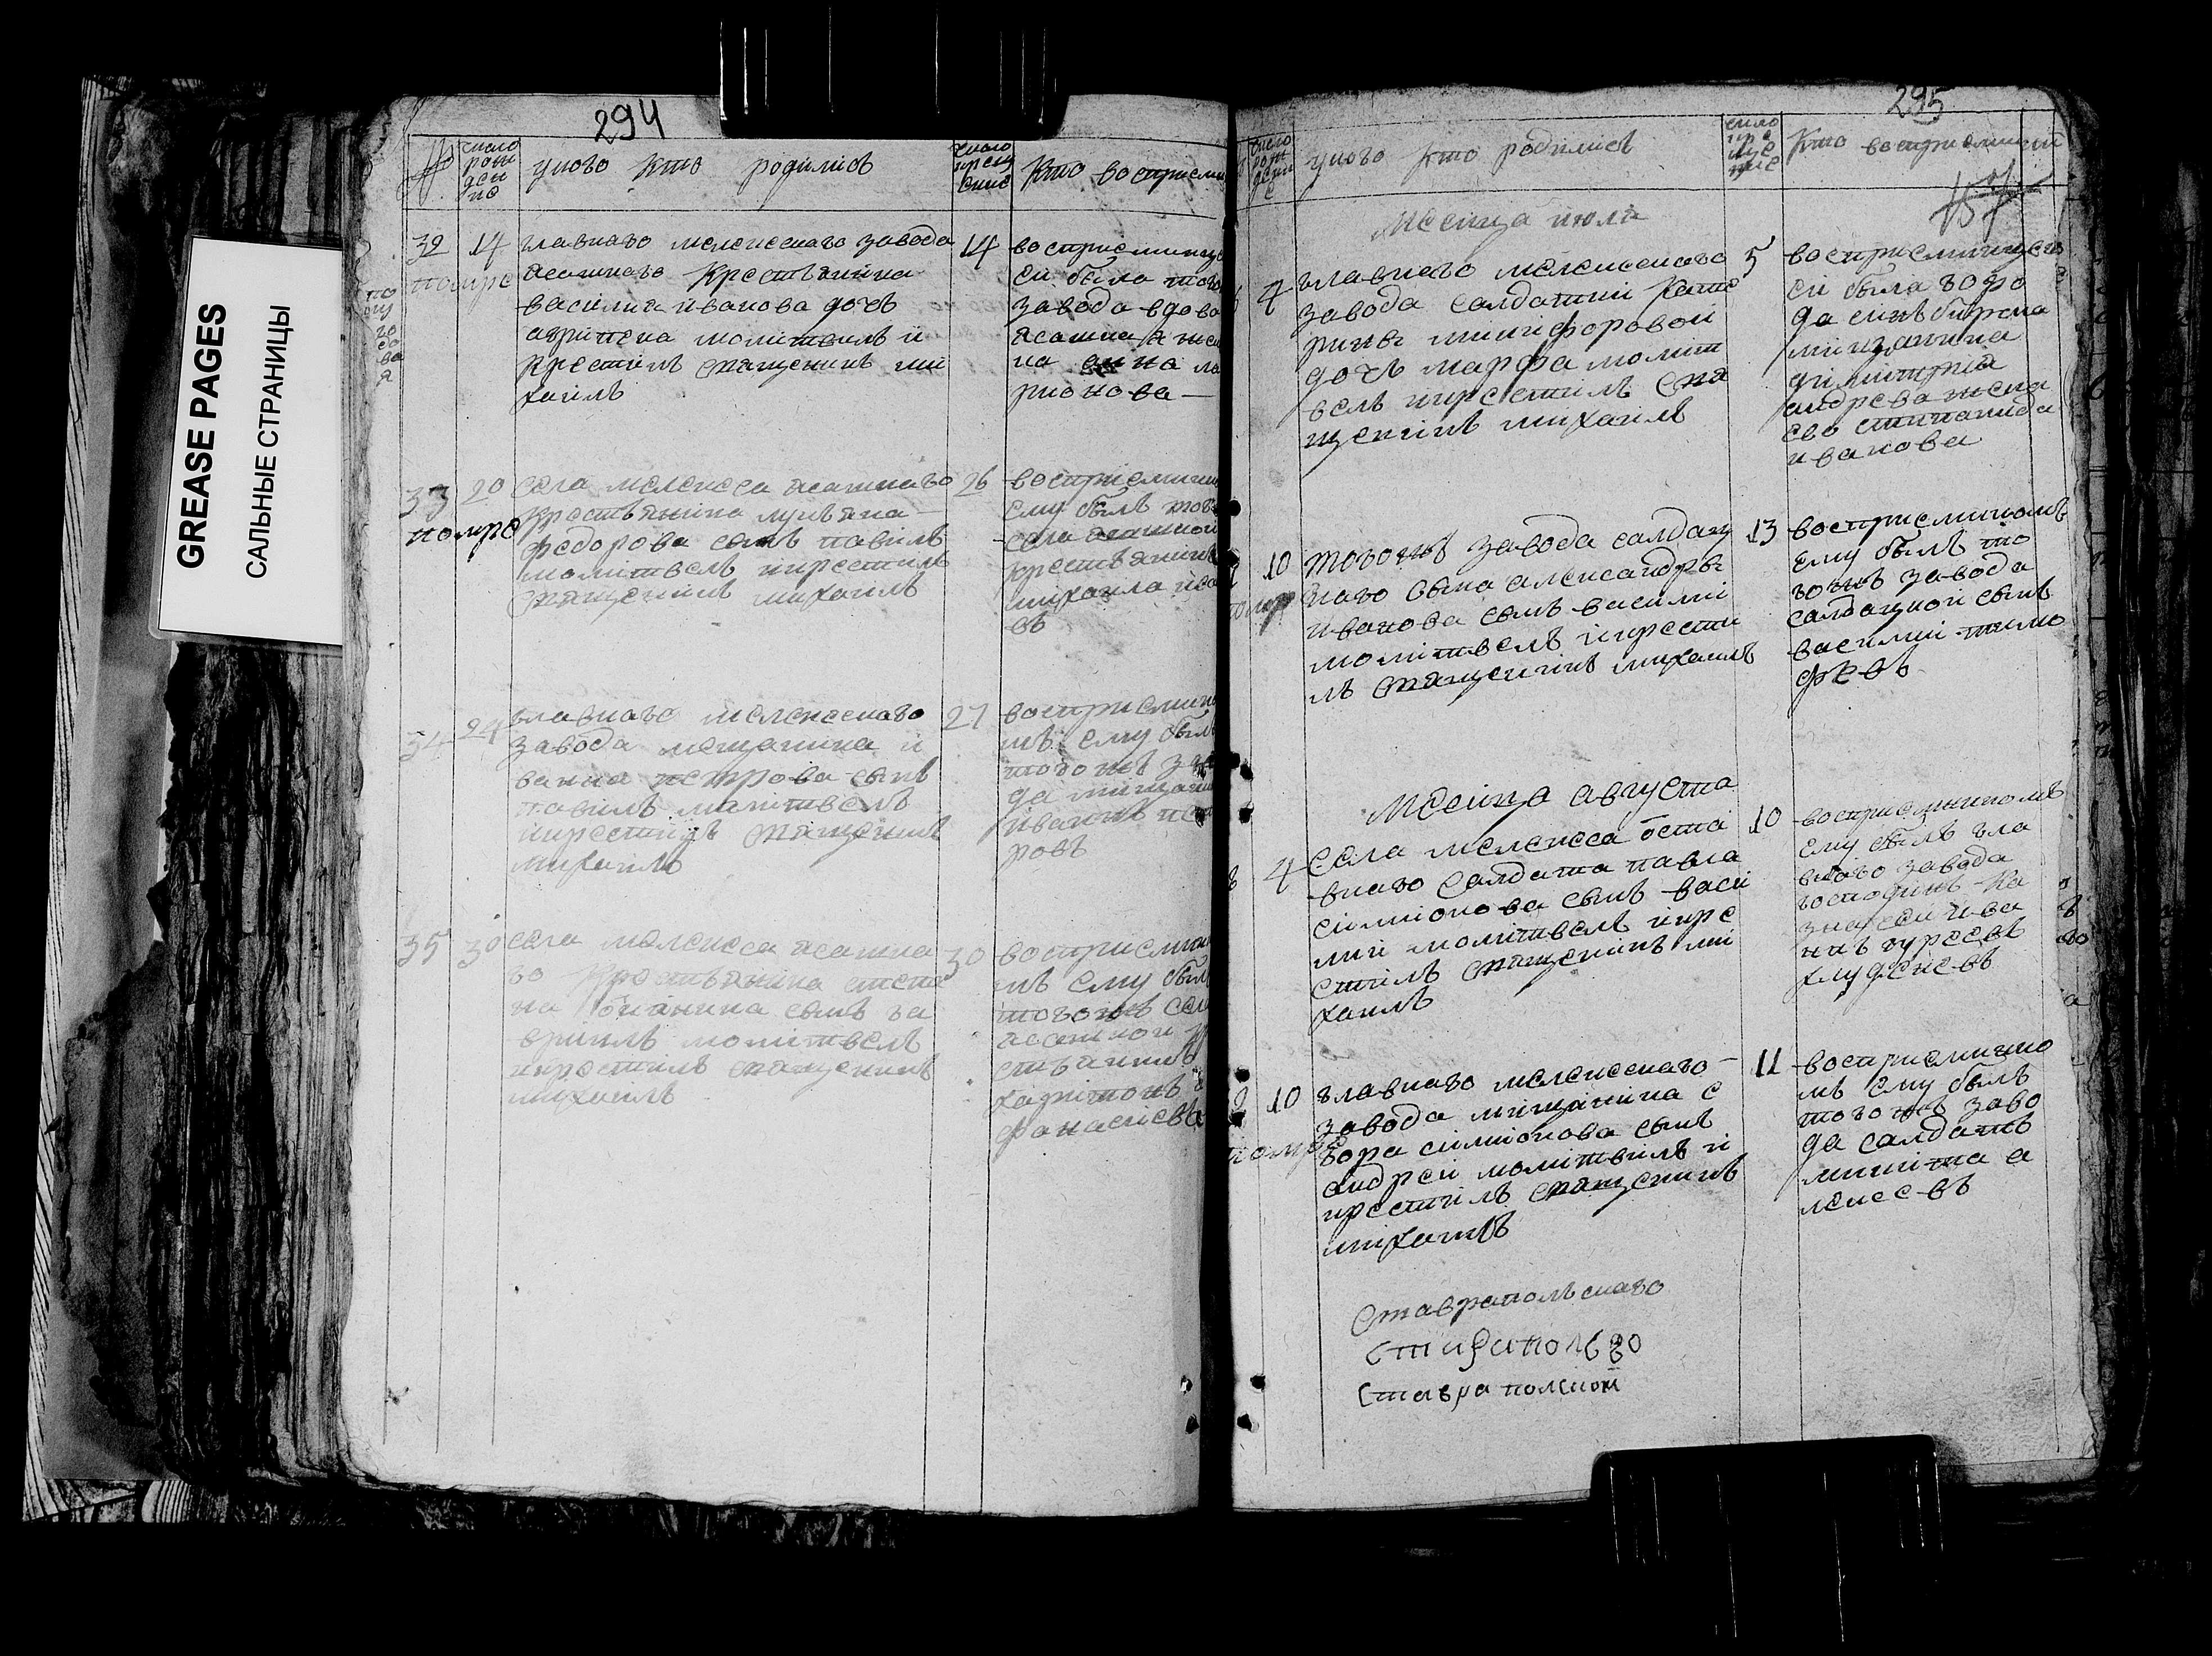 GREASE PAGES
САЛЬНЫЕ СТРАНИЦЫ
294
число рож ден ие
у кого кто родились
число крещ ение
Кто восприем
32
помре
14
главнаго мелекескаго завода
ясашнаго крестьянина
василия иванова дочь
агрипена молитвилъ и
крестилъ священникъ ми
хаилъ
14
восприемницe
ей была того
завода вдова
ясашна жe
на анна ла
рионова
33
помре
20
села мелекеса ясашнаго
крестьянина лукьяна
федорова сынъ павилъ
молитвелъ икрестилъ
священникъ михаилъ
26
восприемник
ему былъ тогъ
села ясашной
крестьянинъ
михаила иса
въ
34
24
главнаго мелекескаго
завода мещанина и
ванна петрова сынъ
павилъ малитвелъ
икрестилъ священникъ
михаилъ
27
восприемник
мъ ему был
того жъ зав
да мищани
иваннъ пет
ровъ
35
30
села мелекеса ясашна
го крестьянина степа
на сынъ га
врiилъ молитвелъ
икрестилъ священникъ
михаилъ
30
восприемни
мъ ему был
того жъ сел
ясашной кр
стьянинъ
харитонъ а
фанасiевъ
295
число рож дени е
у кого кто родились
число кре ще ние
Кто восприемники
месица июля
4
главнаго мелекескаго
завода салдатки Кате
рины никифоровой
дочь марфа молит
велъ икрестилъ свя
щеникъ михаилъ
5
восприемницею
ей была горо
да синъбирска
мищанина
димитрия
андрева жена
ево степанида
иванова
10
помре
тогожъ завода салдац
каго сына александры
иванова сынъ василий
молитвелъ икрести
лъ священикъ михаилъ
13
восприемникомъ
ему былъ то
гожъ завода
салдацкой сынъ
василий тимо
фѣевъ
месица августа
8
4
села мелекеса оста
внаго салдата павла
симионова сынъ васи
лий молитвелъ икре
стилъ священикъ ми
хаилъ
10
восприемникомъ
ему былъ гла
внаго завода
господинъ ка
значей ива
нъ
помре
10
главнаго мелекескаго
завода мищанина е
гора симионова сынъ
андрей молитвилъ и
крестилъ священикъ
михаилъ
11
восприемнико
мъ ему былъ
того жъ заво
да салдатъ
никита а
лексевъ
Ставрапольскаго
Ставрапольской